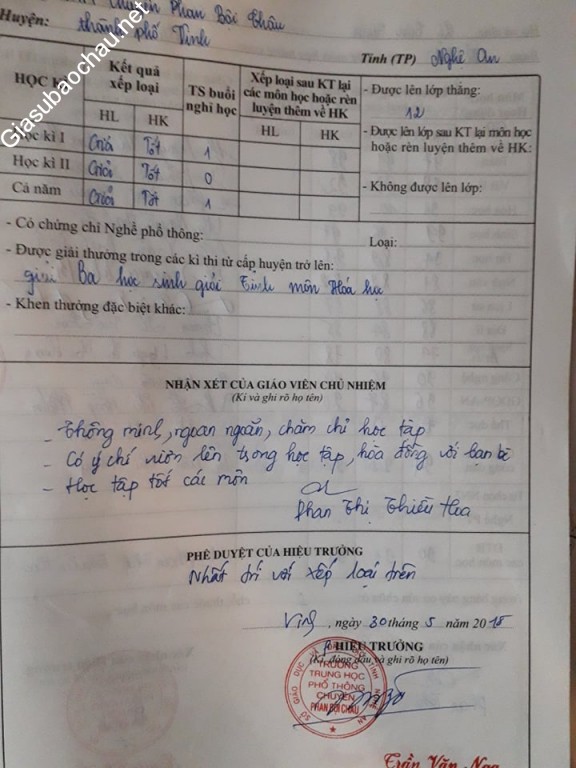 Chuyên Phan Bội Châu
Huyện: thành phố Vinh
Tỉnh (TP) Nghệ An
Giasubaochau.net
HỌC KÌ
Kết quả xếp loại
HL HK
TS buổi nghỉ học
Xếp loại sau KT lại các môn học hoặc rèn luyện thêm về HK
HL HK
Học kì I Khá Tốt 1
Học kì II Giỏi Tốt 0
Cả năm Giỏi Tốt 1
- Được lên lớp thẳng:
12
- Được lên lớp sau KT lại môn học
hoặc rèn luyện thêm về HK:
- Không được lên lớp:
- Có chứng chỉ Nghề phổ thông: Loại:
- Được giải thưởng trong các kì thi từ cấp huyện trở lên:
giải Ba học sinh giỏi Tỉnh môn Hóa học
- Khen thưởng đặc biệt khác:
NHẬN XÉT CỦA GIÁO VIÊN CHỦ NHIỆM
(Kí và ghi rõ họ tên)
- Thông minh, ngoan ngoãn, chăm chỉ học tập
- Có ý chí vươn lên trong học tập, hòa đồng với bạn bè
- Học tập tốt các môn
Phan Thị Thiều Hoa
PHÊ DUYỆT CỦA HIỆU TRƯỞNG
Nhất trí với xếp loại trên
Vinh, ngày 30 tháng 5 năm 2018
HIỆU TRƯỞNG
(Kí, đóng dấu và ghi rõ họ tên)
SỞ GIÁO DỤC VÀ ĐÀO TẠO TỈNH NGHỆ AN
TRƯỜNG
TRUNG HỌC
PHỔ THÔNG
CHUYÊN
PHAN BỘI CHÂU
Trần Văn Nga